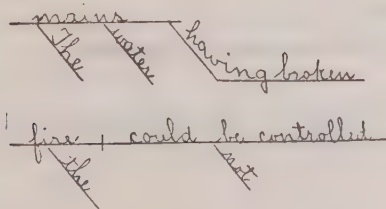 mains
The water having broken
fire could be controlled
the not